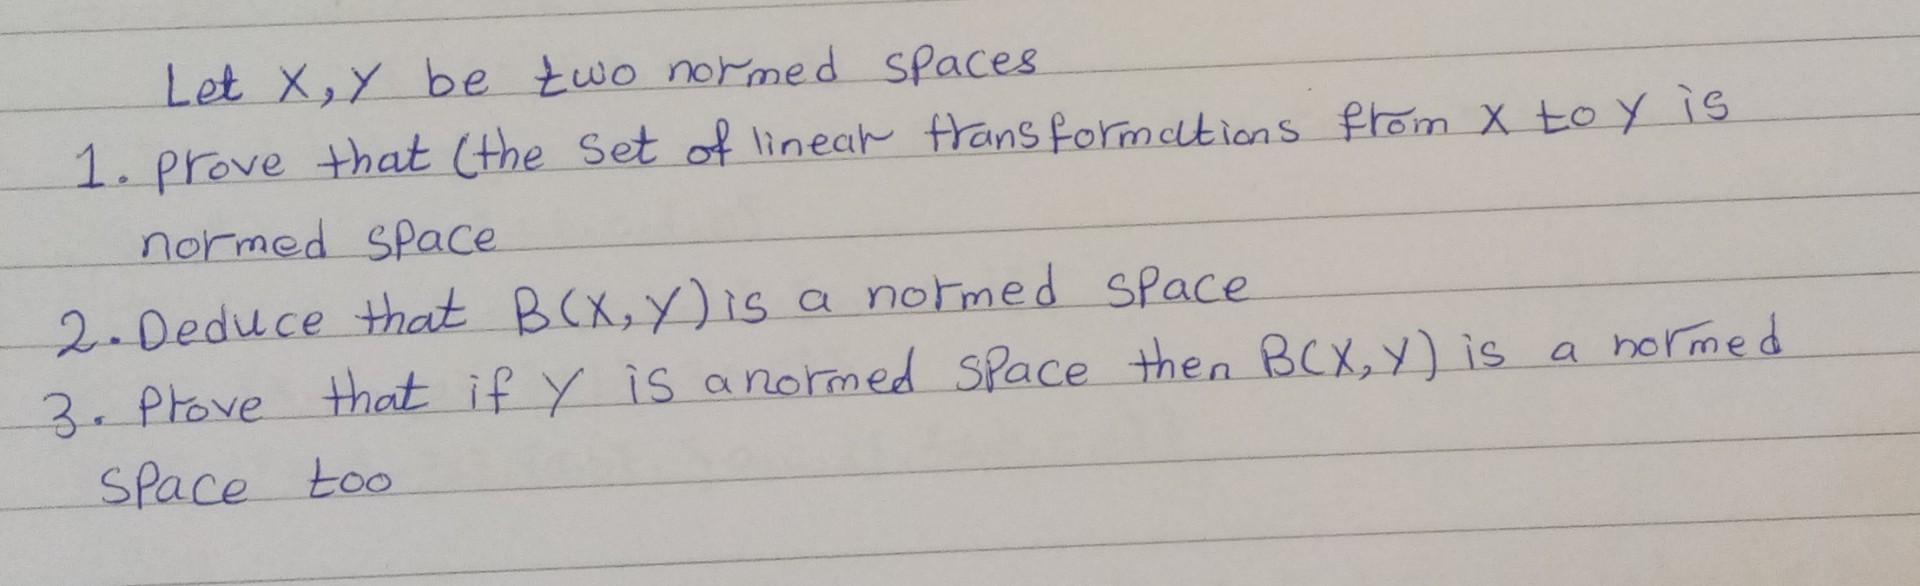 Let X, Y be two normed spaces
1. prove that (the set of linear transformations from X to Y is
normed space
2. Deduce that B(X, Y) is a normed space
3. Prove that if Y is a normed space then B(X, Y) is a normed
space too